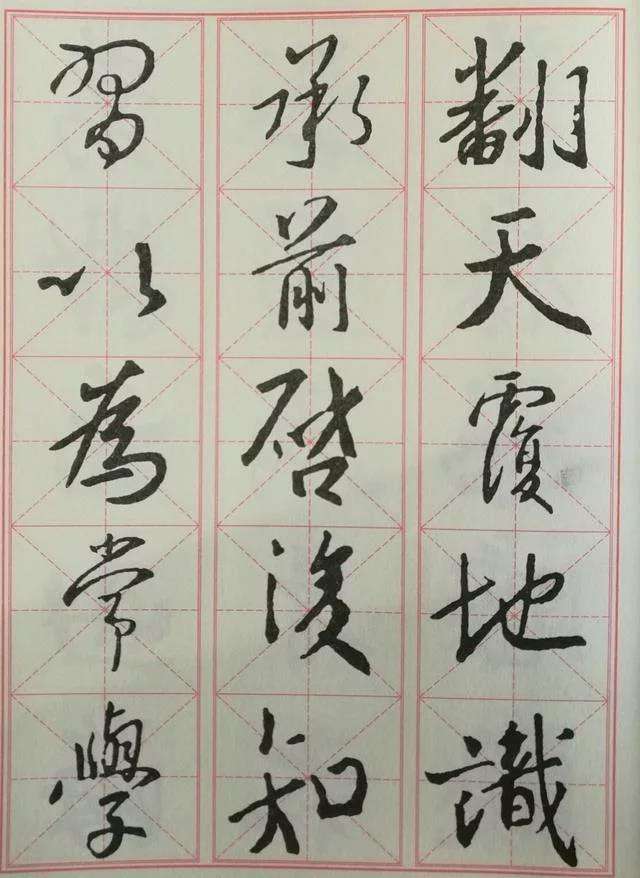 翻天覆地識
承前啓後知
習以為常學